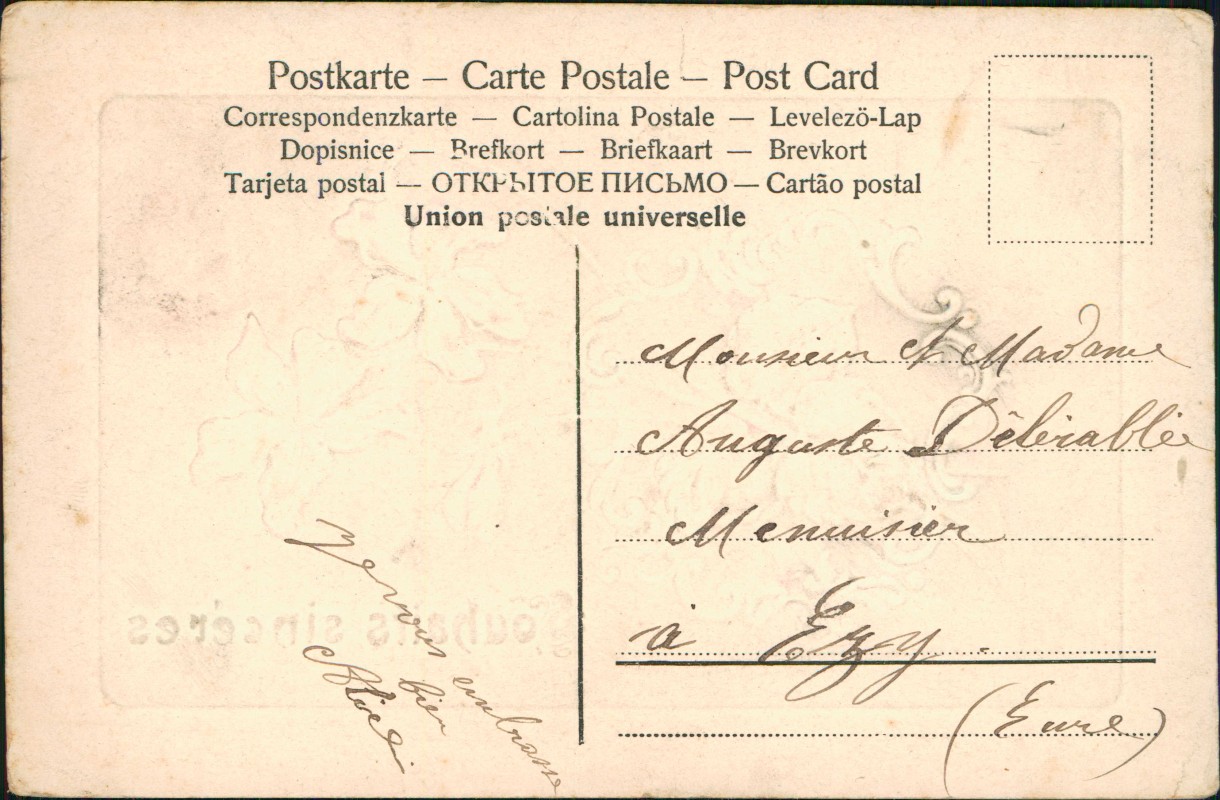 Postkarte – Carte Postale – Post Card
Correspondenzkarte — Cartolina Postale — Levelezö-Lap
Dopisnice — Brefkort — Briefkaart — Brevkort
Tarjeta postal — ОТКРЫТОЕ ПИСЬМО — Cartão postal
Union postale universelle
Monsieur et Madame
Auguste
Menuisier
à Ezy.
(Eure)
Je vous embrasse
bien
Souhaits sincères